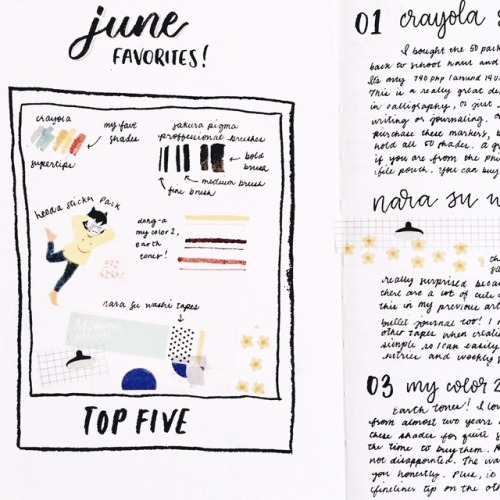 june
FAVORITES!
crayola
my fave
shades
supertips
sakura pigma
proffessional brushes
bold
brush
medium brush
fine brush
heeda sticker pack
dong-a
my color 2,
earth
tones!
nara su washi tapes
MORNING
TOP FIVE
01 crayola
I bought the 50 pack
back to school haul and
Its my 740 php (around
This is a really great
in calligraphy, or just
writing or journaling.
purchase these markers,
hold all 50 shades. A
if you are from the
file pouch. You can buy
nara su
really surprised
there are a lot of cute
this in my previous
bullet journal too! I
other tapes when
simple so I can easily
and weekly
03 my color 2
Earth tones! I
from almost two years
these shades for quite
the time to buy them.
not disappointed. The
you honestly. Plus, it
fineliner tip on the